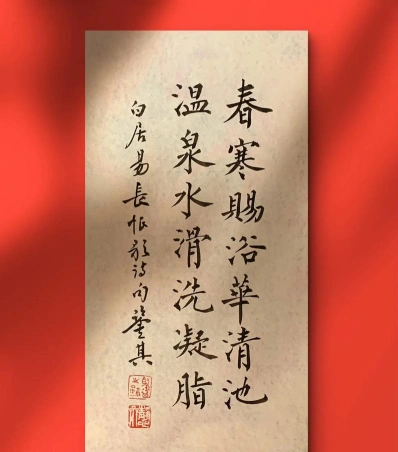 春寒賜浴華清池
温泉水滑洗凝脂
白居易長恨歌詩句